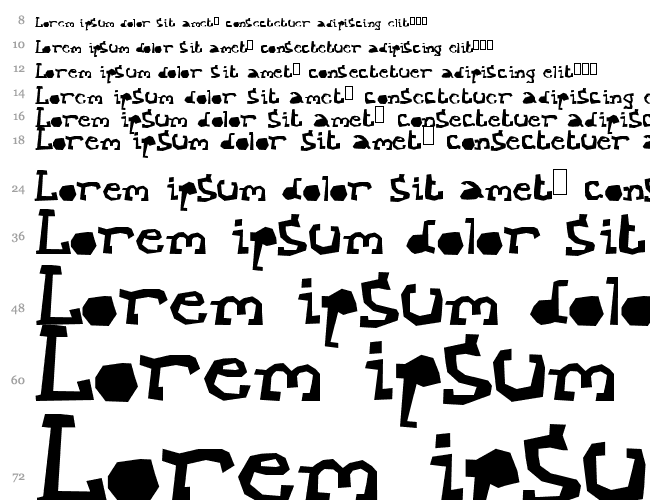 8 Lorem ipsum dolor sit amet▯ consectetuer adipiscing elit▯▯▯
10 Lorem ipsum dolor sit amet▯ consectetuer adipiscing elit▯▯▯
12 Lorem ipsum dolor sit amet▯ consectetuer adipiscing elit▯▯▯
14 Lorem ipsum dolor sit amet▯ consectetuer adipiscing e
16 Lorem ipsum dolor sit amet▯ consectetuer adipisc
18 Lorem ipsum dolor sit amet▯ consectetuer a
24 Lorem ipsum dolor sit amet▯ cons
36 Lorem ipsum dolor sit
48 Lorem ipsum dolo
60 Lorem ipsum
72 Lorem ipsu